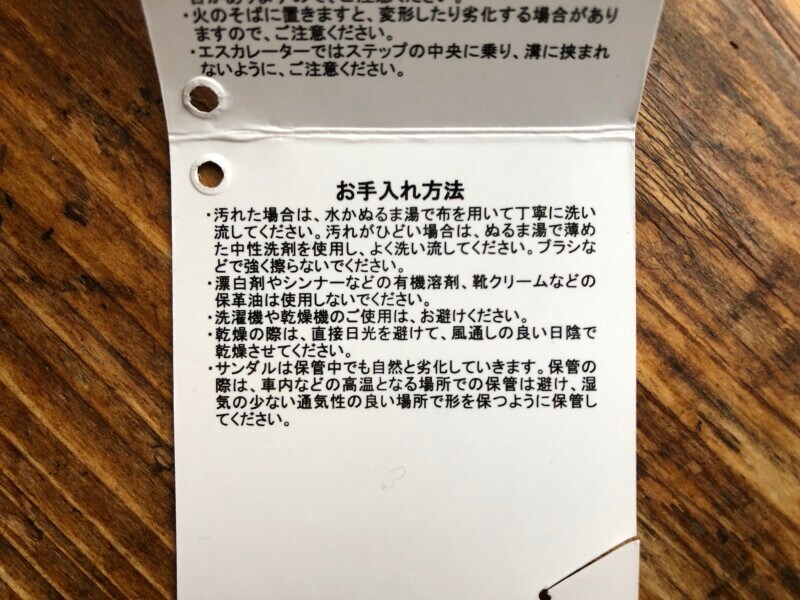 ・火のそばに置きますと、変形したり劣化する場合があり
ますので、ご注意ください。
・エスカレーターではステップの中央に乗り、溝に挟まれ
ないように、ご注意ください。
お手入れ方法
・汚れた場合は、水かぬるま湯で布を用いて丁寧に洗い
流してください。汚れがひどい場合は、ぬるま湯で薄め
た中性洗剤を使用し、よく洗い流してください。ブラシな
どで強く擦らないでください。
・漂白剤やシンナーなどの有機溶剤、靴クリームなどの
保革油は使用しないでください。
・洗濯機や乾燥機のご使用は、お避けください。
・乾燥の際は、直接日光を避けて、風通しの良い日陰で
乾燥させてください。
・サンダルは保管中でも自然と劣化していきます。保管の
際は、車内などの高温となる場所での保管は避け、湿
気の少ない通気性の良い場所で形を保つように保管し
てください。